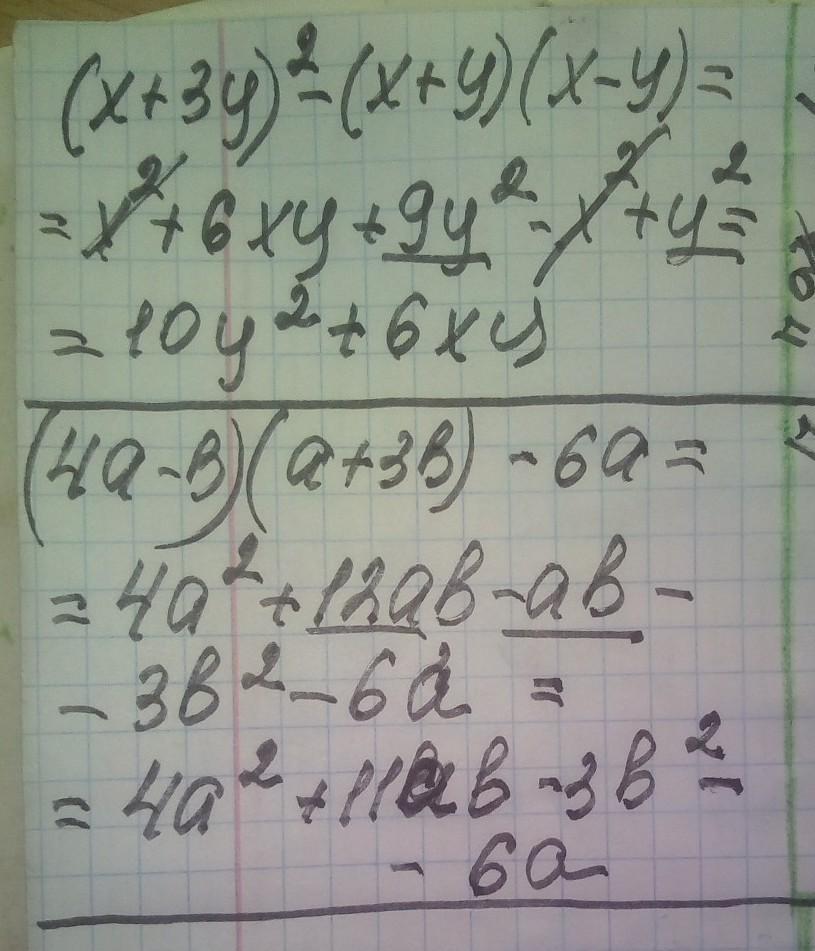 (x+3y)²-(x+y)(x-y)=
=x²+6xy+9y²-x²+y²=
=10y²+6xy
(4a-b)(a+3b)-6a=
=4a²+12ab-ab-
-3b²-6a=
=4a²+11ab-3b²-
-6a